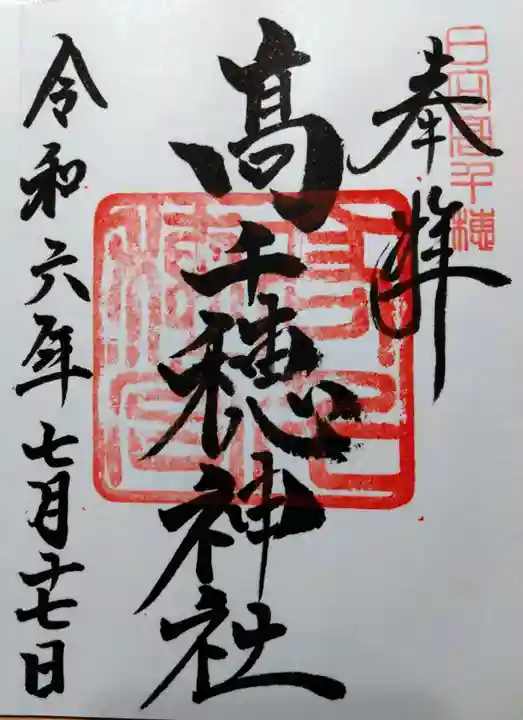 日向高千穂
奉拝
髙千穂神社
令和六年七月十七日